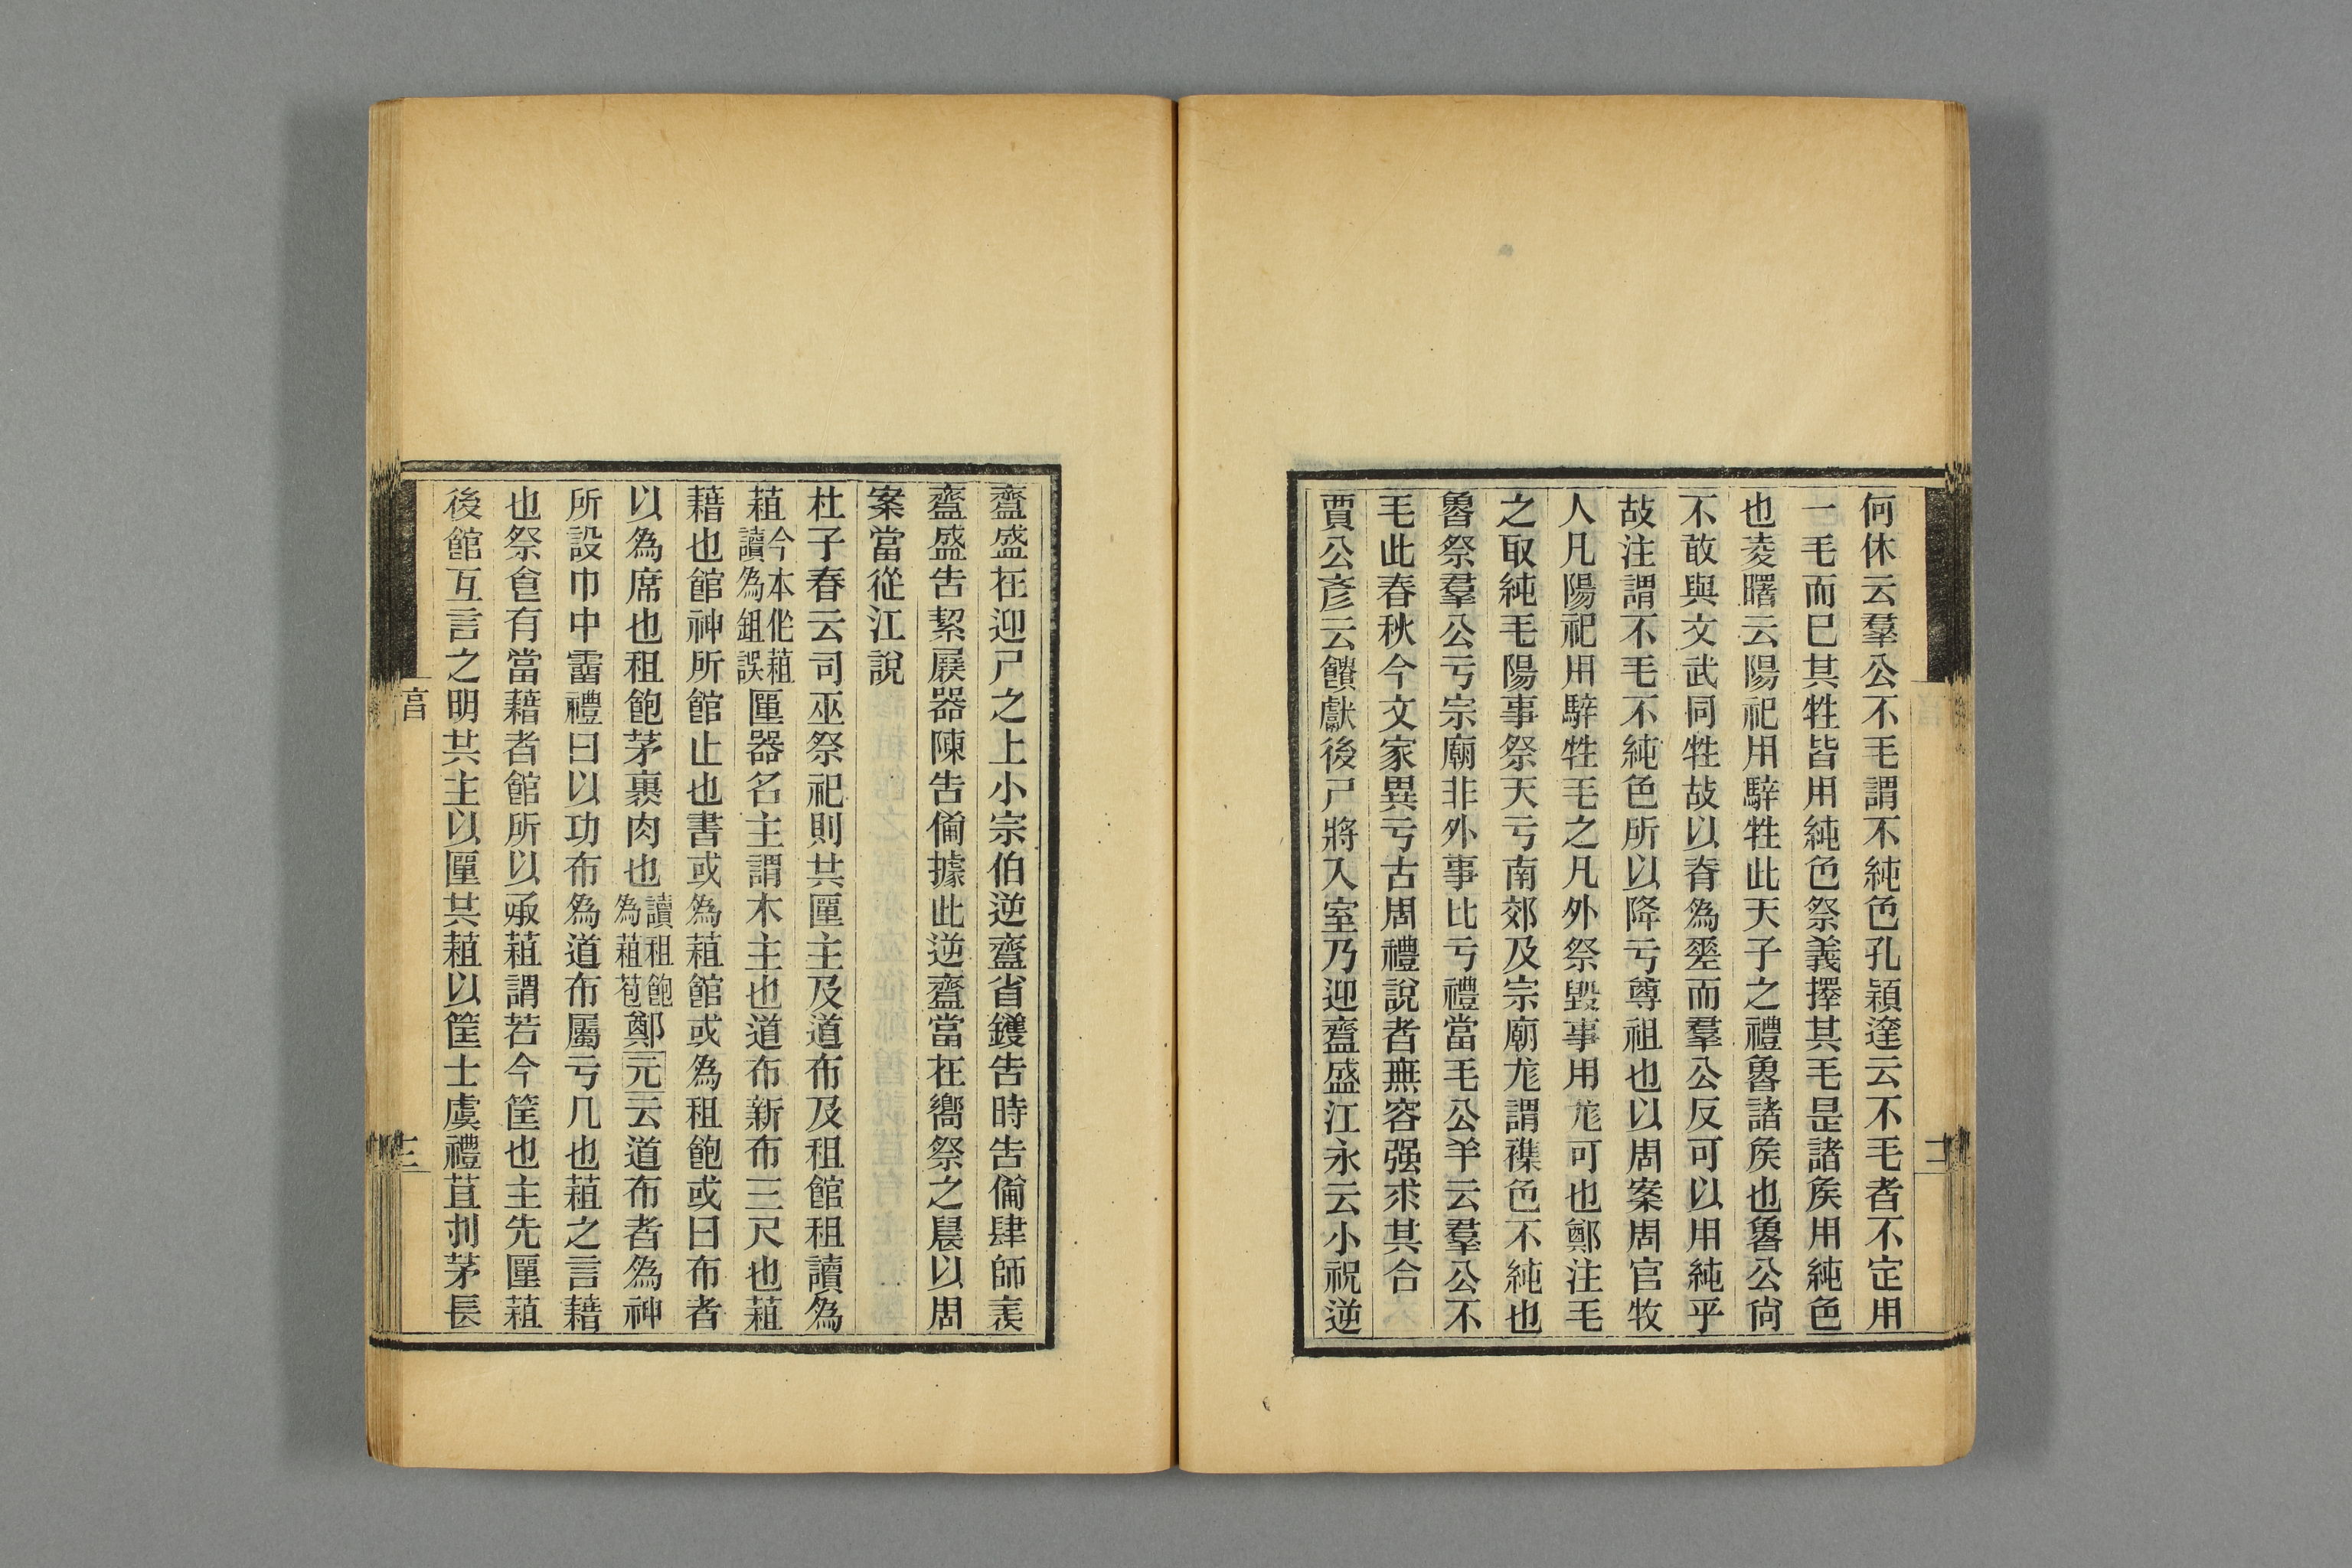 何休云羣公不毛謂不純色孔穎達云不毛者不定用
一毛而已其牲皆用純色祭義擇其毛是諸矦用純色
也凌曙云陽祀用騂牲此天子之禮魯諸矦也魯公尙
不敢與文武同牲故以脊為㘸而羣公反可以用純乎
故注謂不毛不純色所以降亏尊祖也以周案周官牧
人凡陽祀用騂牲毛之凡外祭毀事用尨可也鄭注毛
之取純毛陽事祭天亏南郊及宗廟尨謂襍色不純也
魯祭羣公亏宗廟非外事比亏禮當毛公羊云羣公不
毛此春秋今文家異亏古周禮說者無容强求其合
賈公彥云饋獻後尸將入室乃迎齍盛江永云小祝逆
齍盛在迎尸之上小宗伯逆齍省鑊告時告僃肆師表
齍盛告絜展器陳告僃據此逆齍當在嚮祭之晨以周
案當從江說
杜子春云司巫祭祀則共匰主及道布及租館租讀為
蒩今本作蒩讀為鉏誤匰器名主謂木主也道布新布三尺也蒩
藉也館神所館止也書或為蒩館或為租飽或曰布者
以為席也租飽茅裹肉也讀租飽為蒩苞鄭元云道布者為神
所設巾中霤禮曰以功布為道布屬亏几也蒩之言藉
也祭食有當藉者館所以承蒩謂若今筐也主先匰蒩
後館互言之明共主以匰共蒩以筐士虞禮苴刌茅長